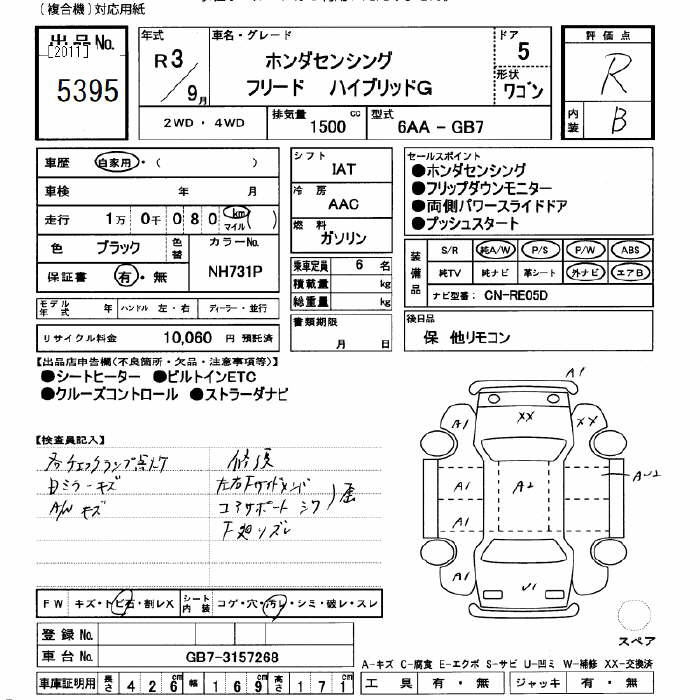 (複合機)対応用紙
出品No.
[2011]
5395
年式
R 3
9月
車名・グレード
ホンダセンシング
フリード ハイブリッドG
ドア
5
形状
ワゴン
評価点
R
内装
B
2WD・4WD
排気量
1500 cc
型式
6AA-GB7
車歴 自家用・( )
車検 年 月
走行 1万 0千 080 km マイル ( )
色 ブラック 色替
カラーNo.
NH731P
保証書 有・無
モデル年式 年 ハンドル 左・右 ディーラー・並行
リサイクル料金 10,060 円 預託済
シフト
IAT
冷房
AAC
燃料
ガソリン
乗車定員 6 名
積載量 kg
総重量 kg
書類期限
月 日
セールスポイント
●ホンダセンシング
●フリップダウンモニター
●両側パワースライドドア
●プッシュスタート
装備品
S/R 純A/W P/S P/W ABS
純TV 純ナビ 革シート 外ナビ エアB
ナビ型番: CN-RE05D
後日品
保 他リモコン
【出品店申告欄(不良箇所・欠品・注意事項等)】
●シートヒーター ●ビルトインETC
●クルーズコントロール ●ストラーダナビ
【検査員記入】
各チェックランプ点灯
Dミラーキズ
A/Wキズ
修復
コアサポート
A1
XX
XX
A1
A1
A2
A1
A1
U1
FW キズ・トビ石・割レX
シート内装 コゲ・穴・汚レ・シミ・破レ・スレ
登録No.
車台No. GB7-3157268
車庫証明用 長さ 426 幅 169 高さ 171
スペア
A-キズ C-腐食 E-エクボ S-サビ U-凹ミ W-補修 XX-交換済
工具 有・無 ジャッキ 有・無